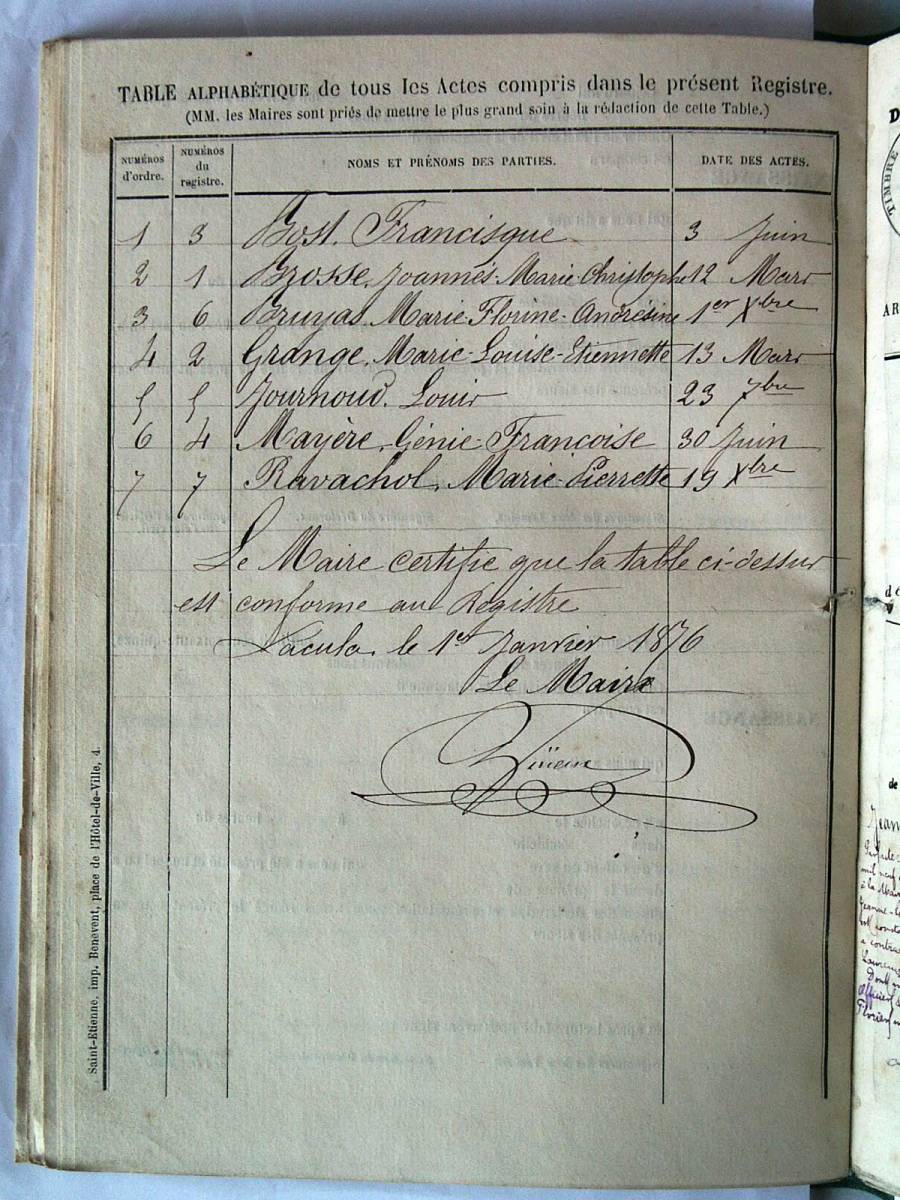 TABLE ALPHABÉTIQUE de tous les Actes compris dans le présent Registre.
(MM. les Maires sont priés de mettre le plus grand soin à la rédaction de cette Table.)
NUMÉROS d'ordre. NUMÉROS du registre. NOMS ET PRÉNOMS DES PARTIES. DATE DES ACTES.
1 3 Bost. Francisque 3 Juin
2 1 Brosse. Joannés-Marie-Christophe 12 Mars
3 6 Bruyas. Marie-Florine-Andrésine 1er Xbre
4 2 Grange. Marie-Louise-Etiennette 13 Mars
5 5 Journoud. Louis 23 7bre
6 4 Mayère. Génie-Francoise 30 Juin
7 7 Ravachol. Marie-Pierrette 19 Xbre
Le Maire certifie que la table ci-dessus
est conforme au Registre
le 1er Janvier 1876
Le Maire
Saint-Etienne, imp. Benevent, place de l'Hôtel-de-Ville, 4.
TIMBRE